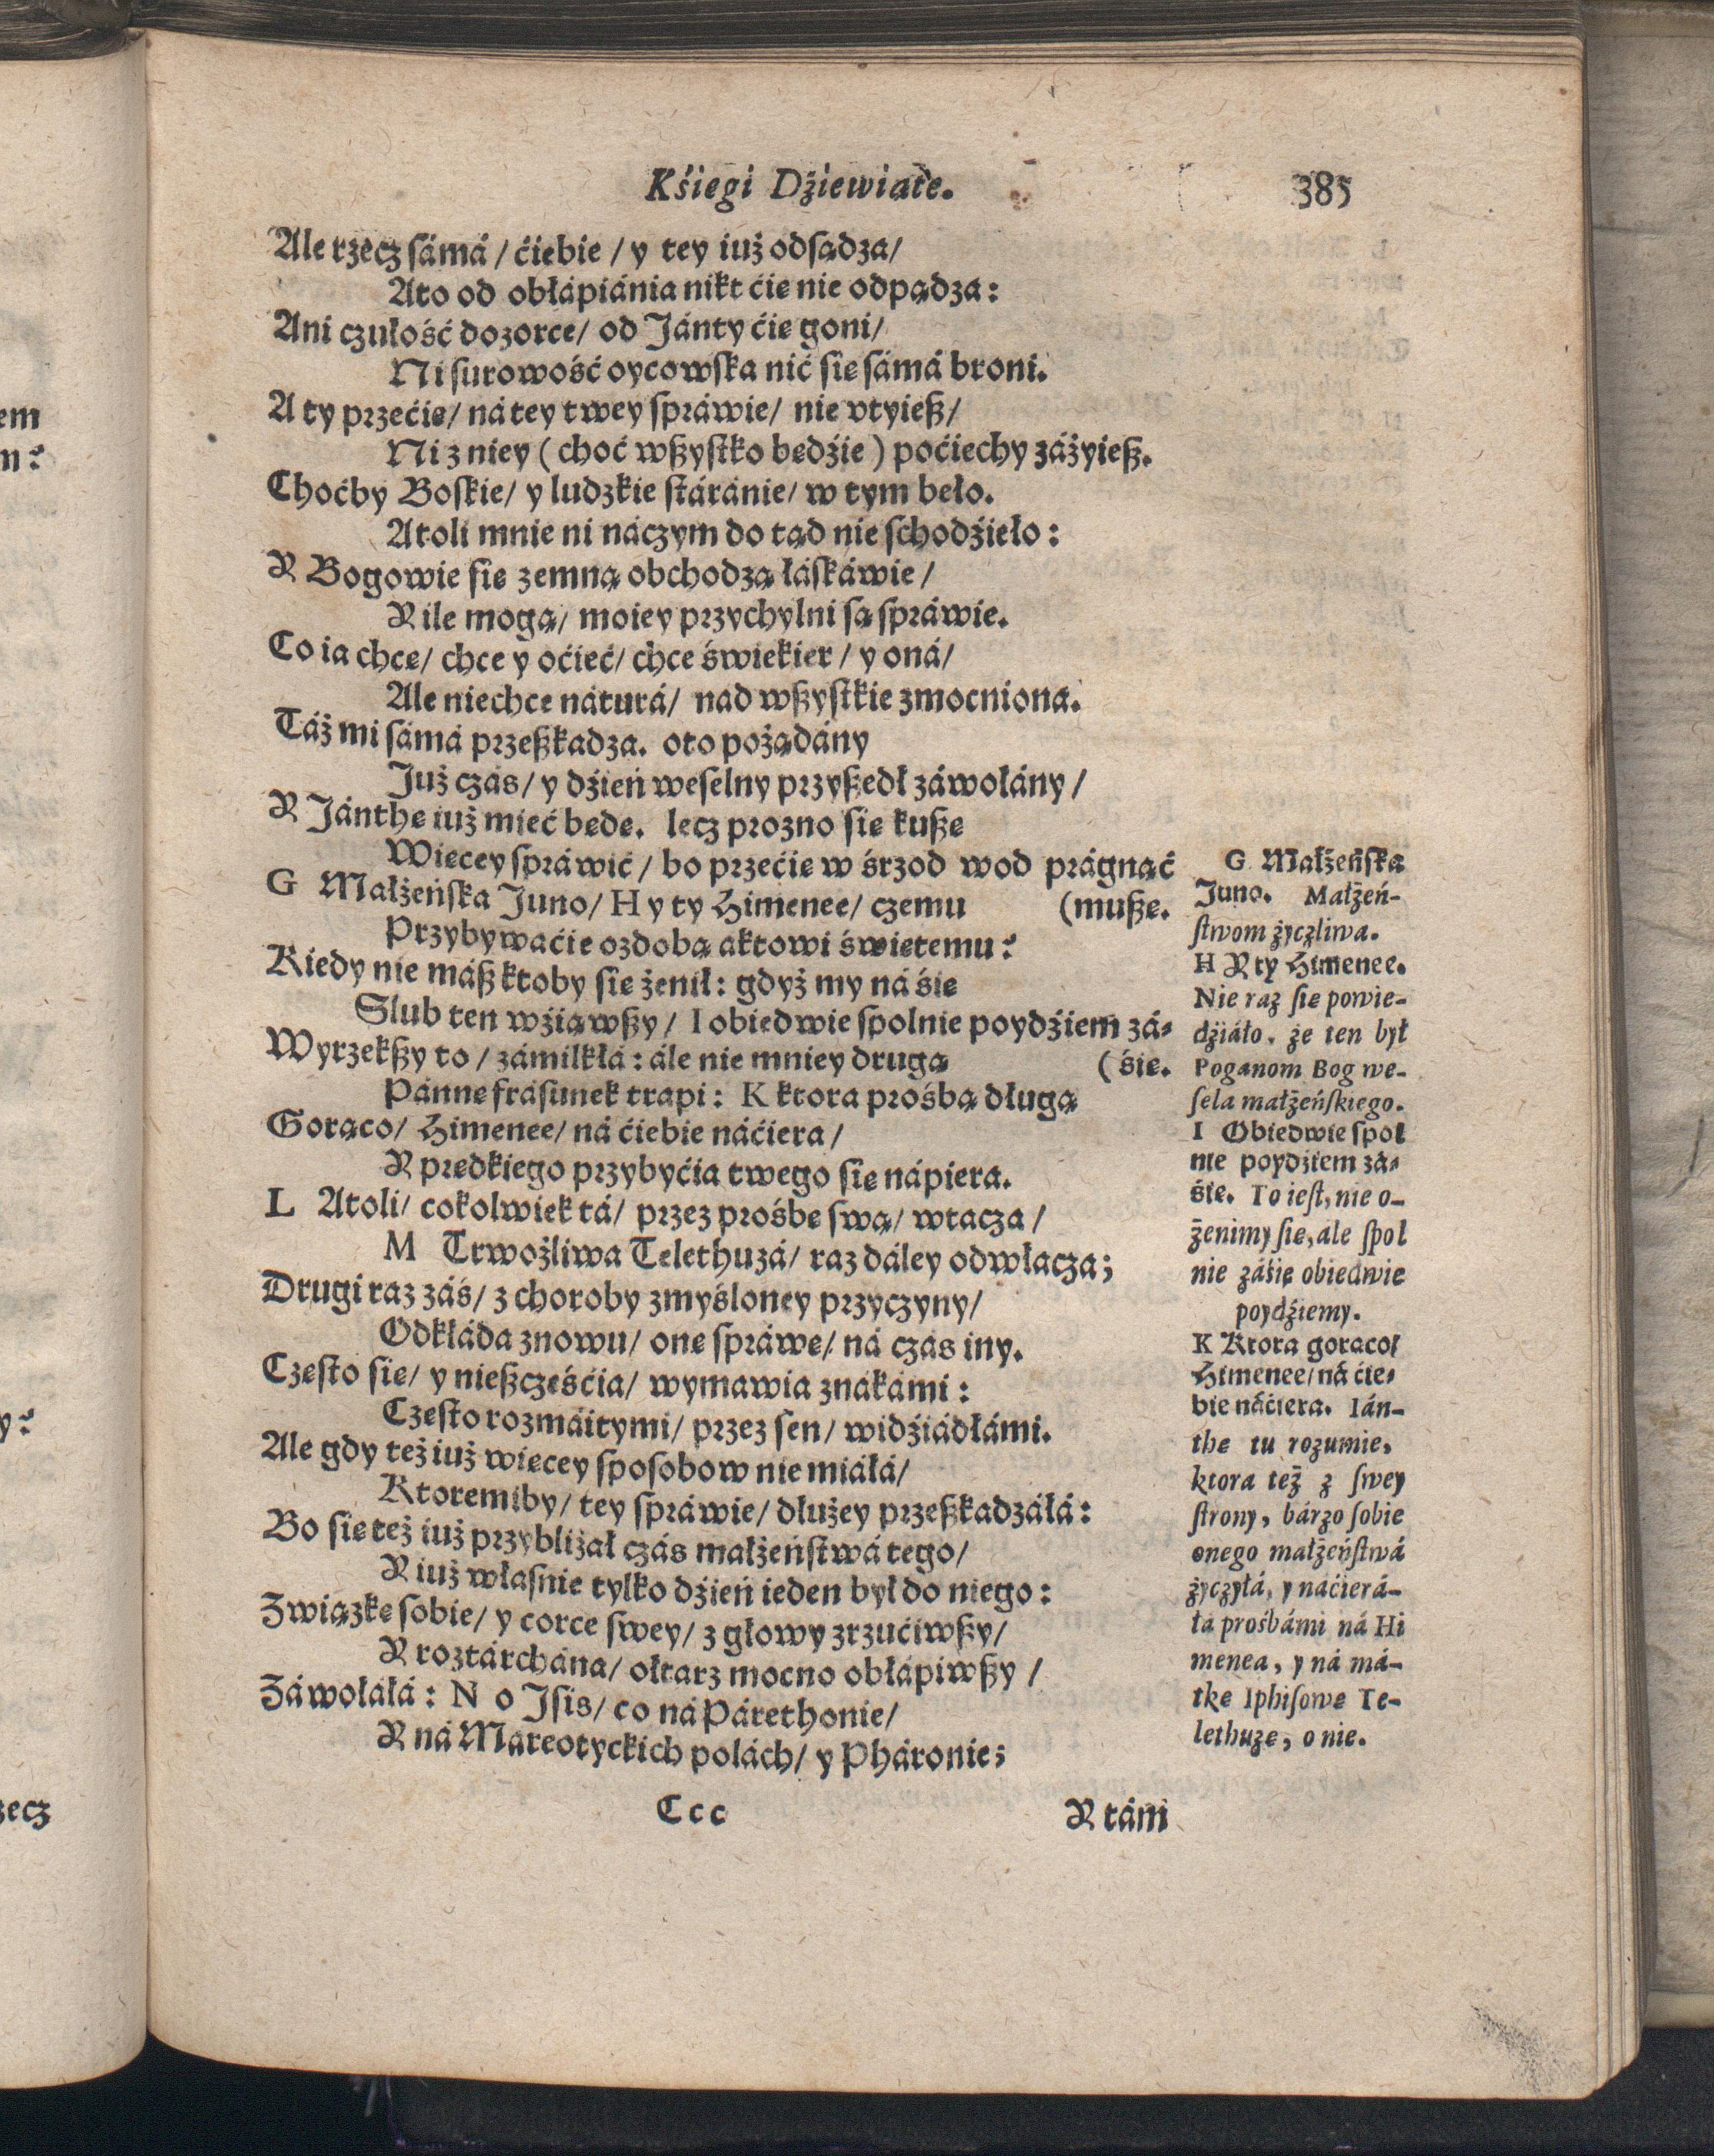 Kśiegi Dźiewiąte.
385
Ale rzecz sámá / ćiebie / y tey iuż odsądza /
Ato od obłápiánia nikt ćie nie odpądza:
Ani czułość dozorce / od Jánty ćie goni /
Ni surowość oycowska nić sie sámá broni.
A ty przećie / ná tey twey spráwie / nie vtyiesz /
Ni z niey ( choć wszystko bedźie ) poćiechy záżyiesz.
Choćby Boskie / y ludzkie stáránie / w tym beło.
Atoli mnie ni náczym do tąd nie schodźieło:
Y Bogowie sie zemną obchodzą łáskáwie /
Y ile mogą / moiey przychylni są spráwie.
Co ia chce / chce y oćieć / chce świekier / y oná /
Ale niechce náturá / nad wszystkie zmocniona.
Táż mi sámá przeszkadza. oto pożądány
Już czás / y dźień weselny przyszedł záwołány /
Y Jánthe iuż mieć bede. lecz prozno sie kusze
Wiecey spráwić / bo przećie w śrzod wod prágnąć
G Małżeńska Juno / H y ty Himenee / czemu (musze.
Przybywaćie ozdobą aktowi świetemu?
Kiedy nie mász ktoby sie żenił: gdyż my ná śie
Slub ten wźiąwszy / I obiedwie spolnie poydźiem zá-
Wyrzekszy to / zámilkłá: ále nie mniey drugą (śie.
Pánne frásunek trapi: K ktora prośbą długą
Gorąco / Himenee / ná ćiebie náćiera /
Y predkiego przybyćia twego sie nápiera.
L Atoli / cokolwiek tá / przez prośbe swą / wtacza /
M Trwożliwa Telethuzá / raz dáley odwłacza;
Drugi raz záś / z choroby zmyśloney przyczyny /
Odkłáda znowu / one spráwe / ná czás iny.
Czesto sie / y nieszcześćia / wymawia znákámi:
Czesto rozmáitymi / przez sen / widźiádłámi.
Ale gdy też iuż wiecey sposobow nie miáłá /
Ktoremiby / tey spráwie / dłużey przeszkadzáłá:
Bo sie też iuż przybliżał czás małżeństwá tego /
Y iuż własnie tylko dźień ieden był do niego:
Związke sobie / y corce swey / z głowy zrzućiwszy /
Y roztárchána / ołtarz mocno obłápiwszy /
Záwołáłá: N o Jsis / co ná Párethonie /
Y ná Mareotyckich polách / y Pháronie;
Ccc
Y tám
G Małżeńska
Juno. Małżeń-
stwom życzliwa.
H Y ty Himenee.
Nie raz sie powie-
dźiáło, że ten był
Poganom Bog we-
sela małżeńskiego.
I Obiedwie spol
nie poydźiem zá-
śie. To iest, nie o-
żenimy sie, ale spol
nie záśie obiedwie
poydźiemy.
K Ktora gorąco/
Himenee / ná ćie-
bie náćiera. Ián-
the tu rozumie,
ktora też z swey
strony, bárzo sobie
onego małżeństwá
życzyłá, y náćierá-
łá prośbámi ná Hi
menea, y ná má-
tke Iphisowe Te-
lethuze, o nie.